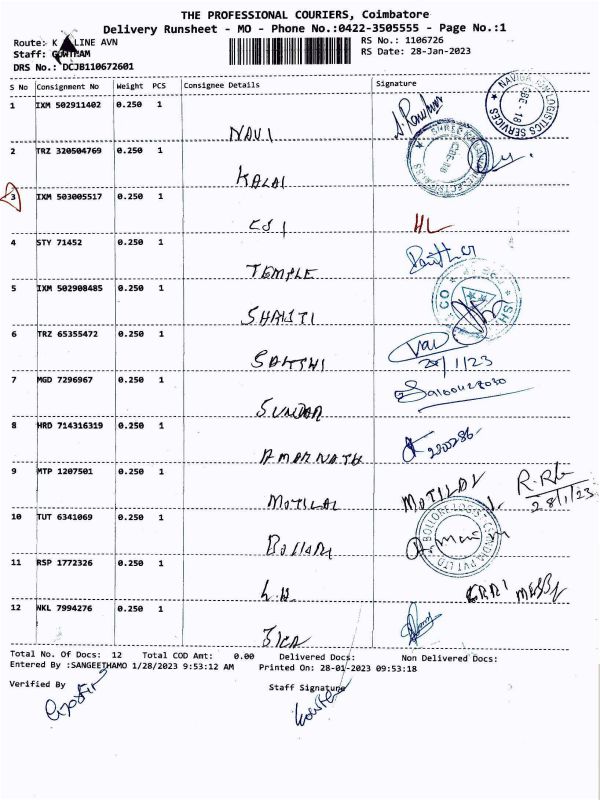 THE PROFESSIONAL COURIERS, Coimbatore
Delivery Runsheet - MO - Phone No.:0422-3505555 - Page No.:1
Route: K LINE AVN RS No.: 1106726
Staff: GOWTHAM RS Date: 28-Jan-2023
DRS No.: DCJB110672601
S No Consignment No Weight PCS Consignee Details Signature
1 IXM 502911402 0.250 1
NAVI
2 TRZ 320504769 0.250 1
KALAI
3 IXM 503005517 0.250 1
CSI HL
4 STY 71452 0.250 1
TEMPLE
5 IXM 502908485 0.250 1
SHAKTI
6 TRZ 65355472 0.250 1
SAKTHI 28/1/23
7 MGD 7296967 0.250 1
SUNDAR
8 HRD 714316319 0.250 1
AMARNATH
9 MTP 1207501 0.250 1
MOTILAL MOTILAL 28/1/23
10 TUT 6341069 0.250 1
BOLLORE LOGIS
11 RSP 1772326 0.250 1
12 NKL 7994276 0.250 1
Total No. Of Docs: 12 Total COD Amt: 0.00 Delivered Docs: Non Delivered Docs:
Entered By :SANGEETHAMO 1/28/2023 9:53:12 AM Printed On: 28-01-2023 09:53:18
Verified By Staff Signature